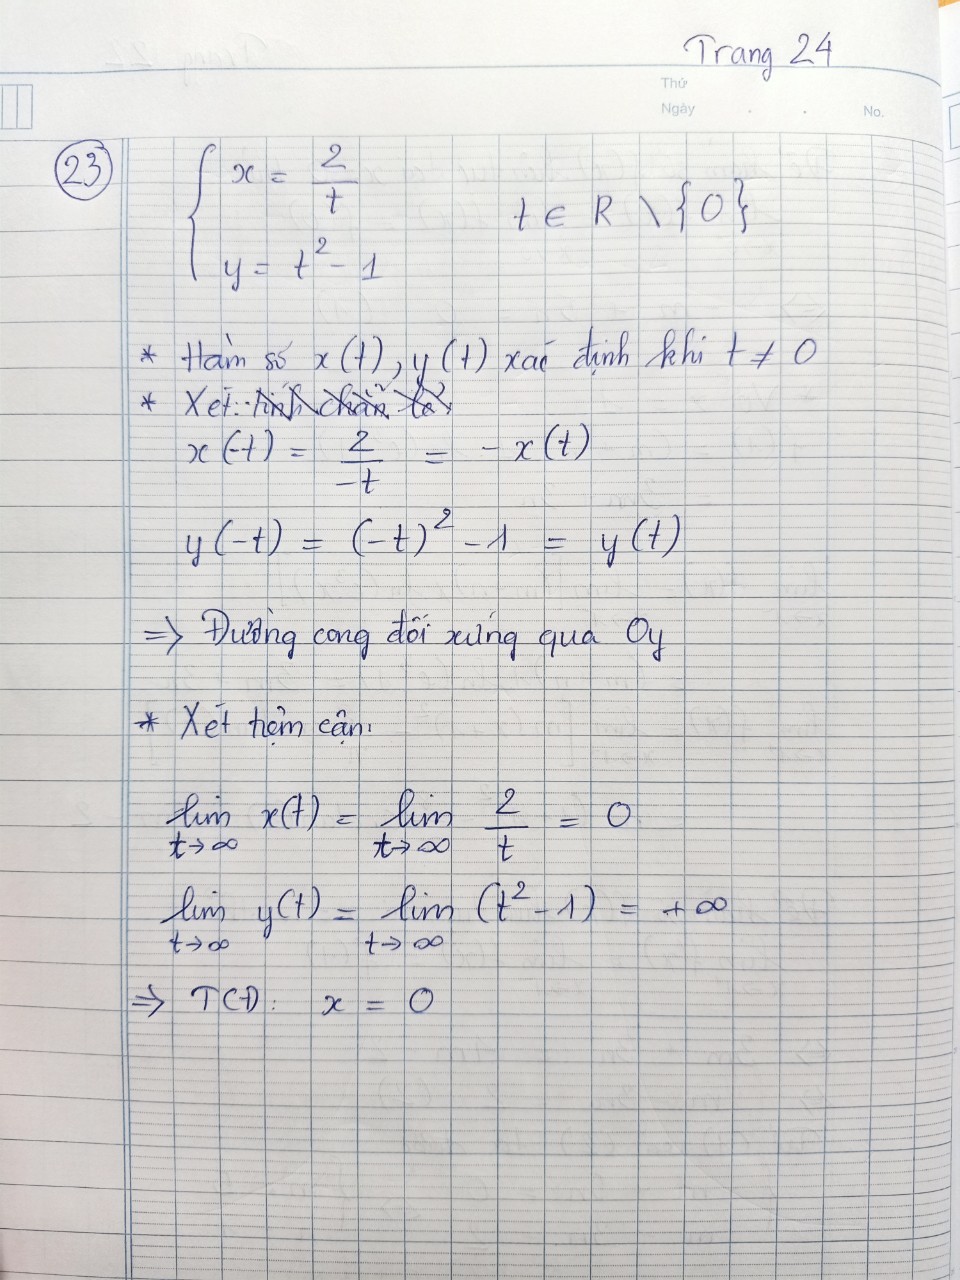 Trang 24
Thứ
Ngày . . No.
23
x = 2/t
t ∈ R \ {0}
y = t² - 1
* Hàm số x(t), y(t) xác định khi t ≠ 0
* Xét: tính chẵn lẻ
x(-t) = 2/-t = -x(t)
y(-t) = (-t)² - 1 = y(t)
=> Đường cong đối xứng qua Oy
* Xét tiệm cận:
lim t→∞ x(t) = lim t→∞ 2/t = 0
lim t→∞ y(t) = lim t→∞ (t² - 1) = +∞
=> TCĐ: x = 0